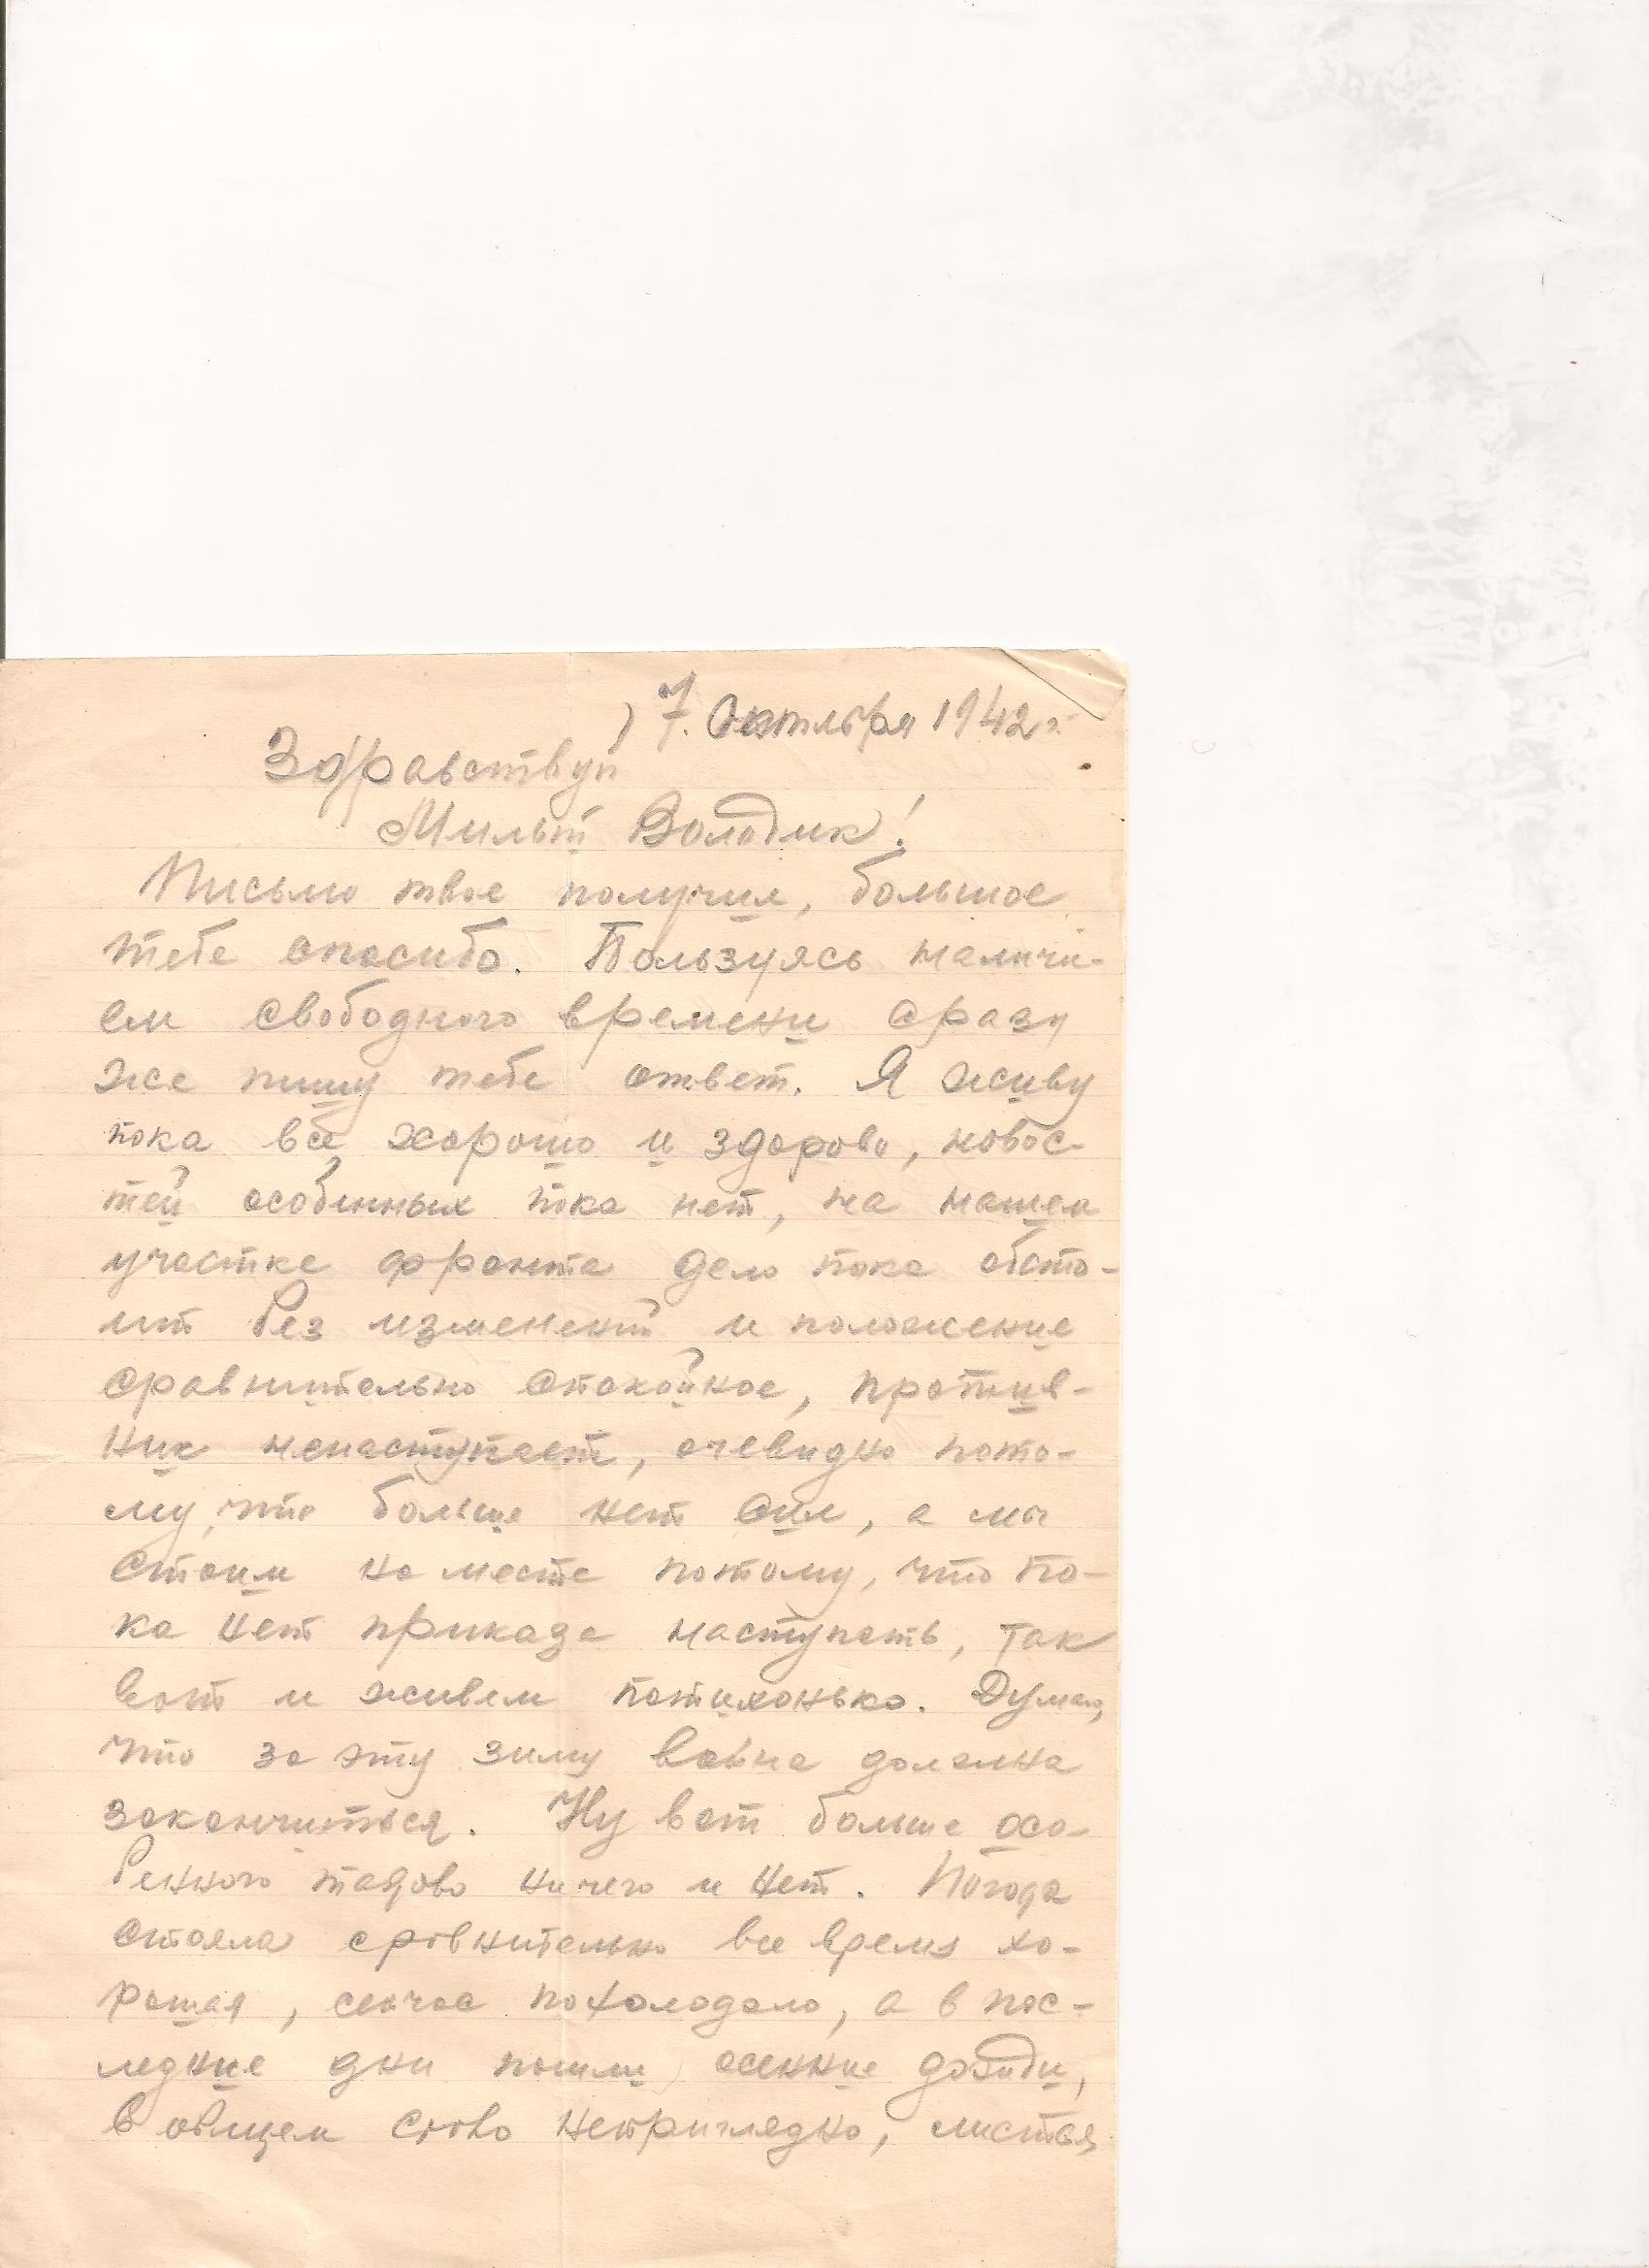 7. Октября 1942 г.
Здравствуй
Милый Володик!
Письмо твое получил, большое
тебе спасибо. Пользуясь наличи-
ем свободного времени сразу
же пишу тебе ответ. Я живу
пока всё хорошо и здорово, новос-
тей особенных пока нет, на нашем
участке фронта дело пока обсто-
ит без изменений и положение
сравнительно спокойное, против-
ник ненаступает, очевидно пото-
му, что больше нет сил, а мы
стоим на месте потому, что по-
ка нет приказа наступать, так
вот и живем потихонько. Думаю,
что за эту зиму война должна
закончиться. Ну вот больше осо-
бенного такова ничего и нет. Погода
стояла сровнительно все время хо-
рошая, сейчас похолодало, а в пос-
ледние дни пошли осенние дожди,
в общем стало неприглядно, листья